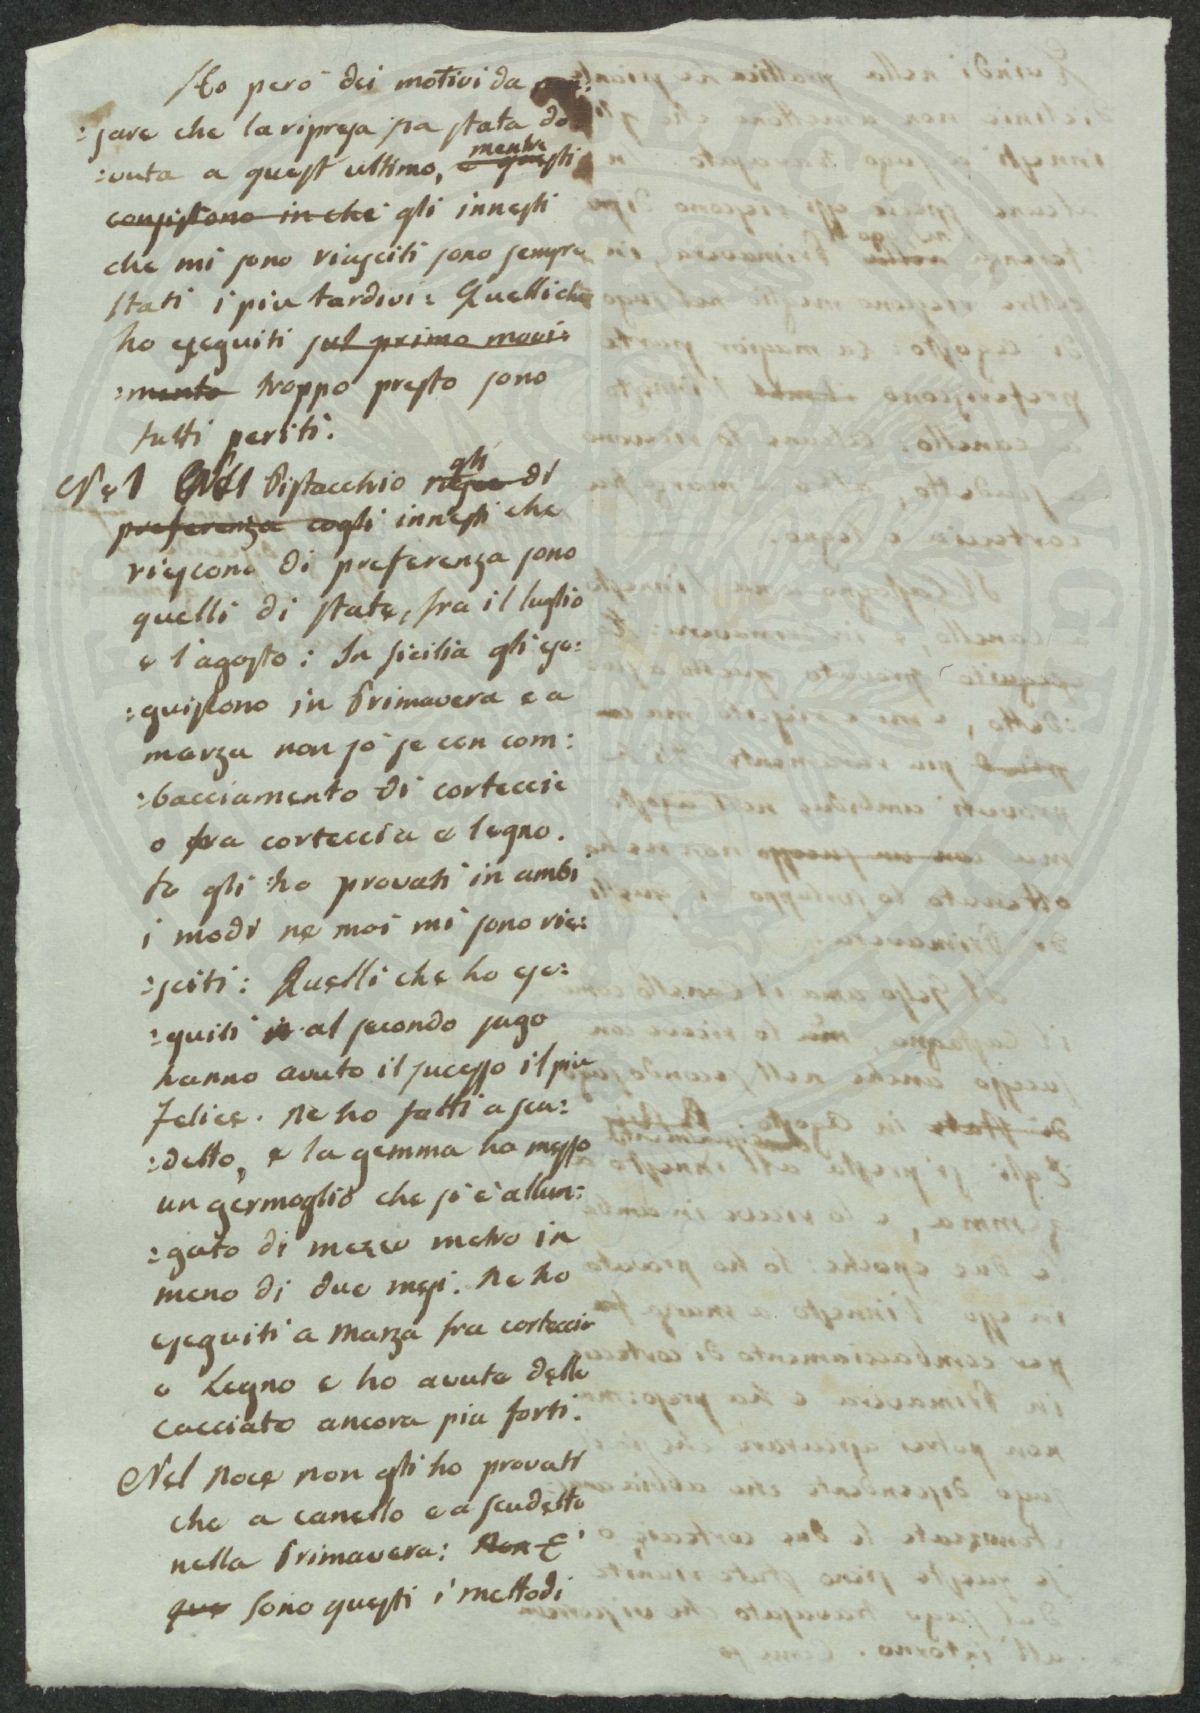 Ho però dei motivi da pen:
:sare che la ripresa sia stata do:
:vuta a quest ultimo, mentre e questi
consistono in che gli innesti
che mi sono riusciti sono sempre
stati i piu tardivi: Quelli che
ho eseguiti sul primo movi:
:mento troppo presto sono
tutti periti.
Nel Pistacchio riesce di gli
preferenza cogli innesti che
riescono di preferenza sono
quelli di state, fra il luglio
e l'agosto: In Sicilia gli ese:
:guiscono in Primavera e a
marza non so se con com:
:bacciamento di corteccie
o fra corteccia e legno.
Io gli ho provati in ambi
i modi ne mai mi sono rie:
:sciti: Quelli che ho ese:
:guiti in al secondo sugo
hanno avuto il sucesso il piu
felice. Ne ho fatti a scu:
:detto, e la gemma ha messo
un germoglio che si è allun:
:gato di mezzo metro in
meno di due mesi. Ne ho
eseguiti a marza fra corteccia
e Legno e ho avute delle
cacciate ancora piu forti.
Nel Noce non gli ho provati
che a canello e a scudetto
nella Primavera: Non È
que sono questi i mettodi